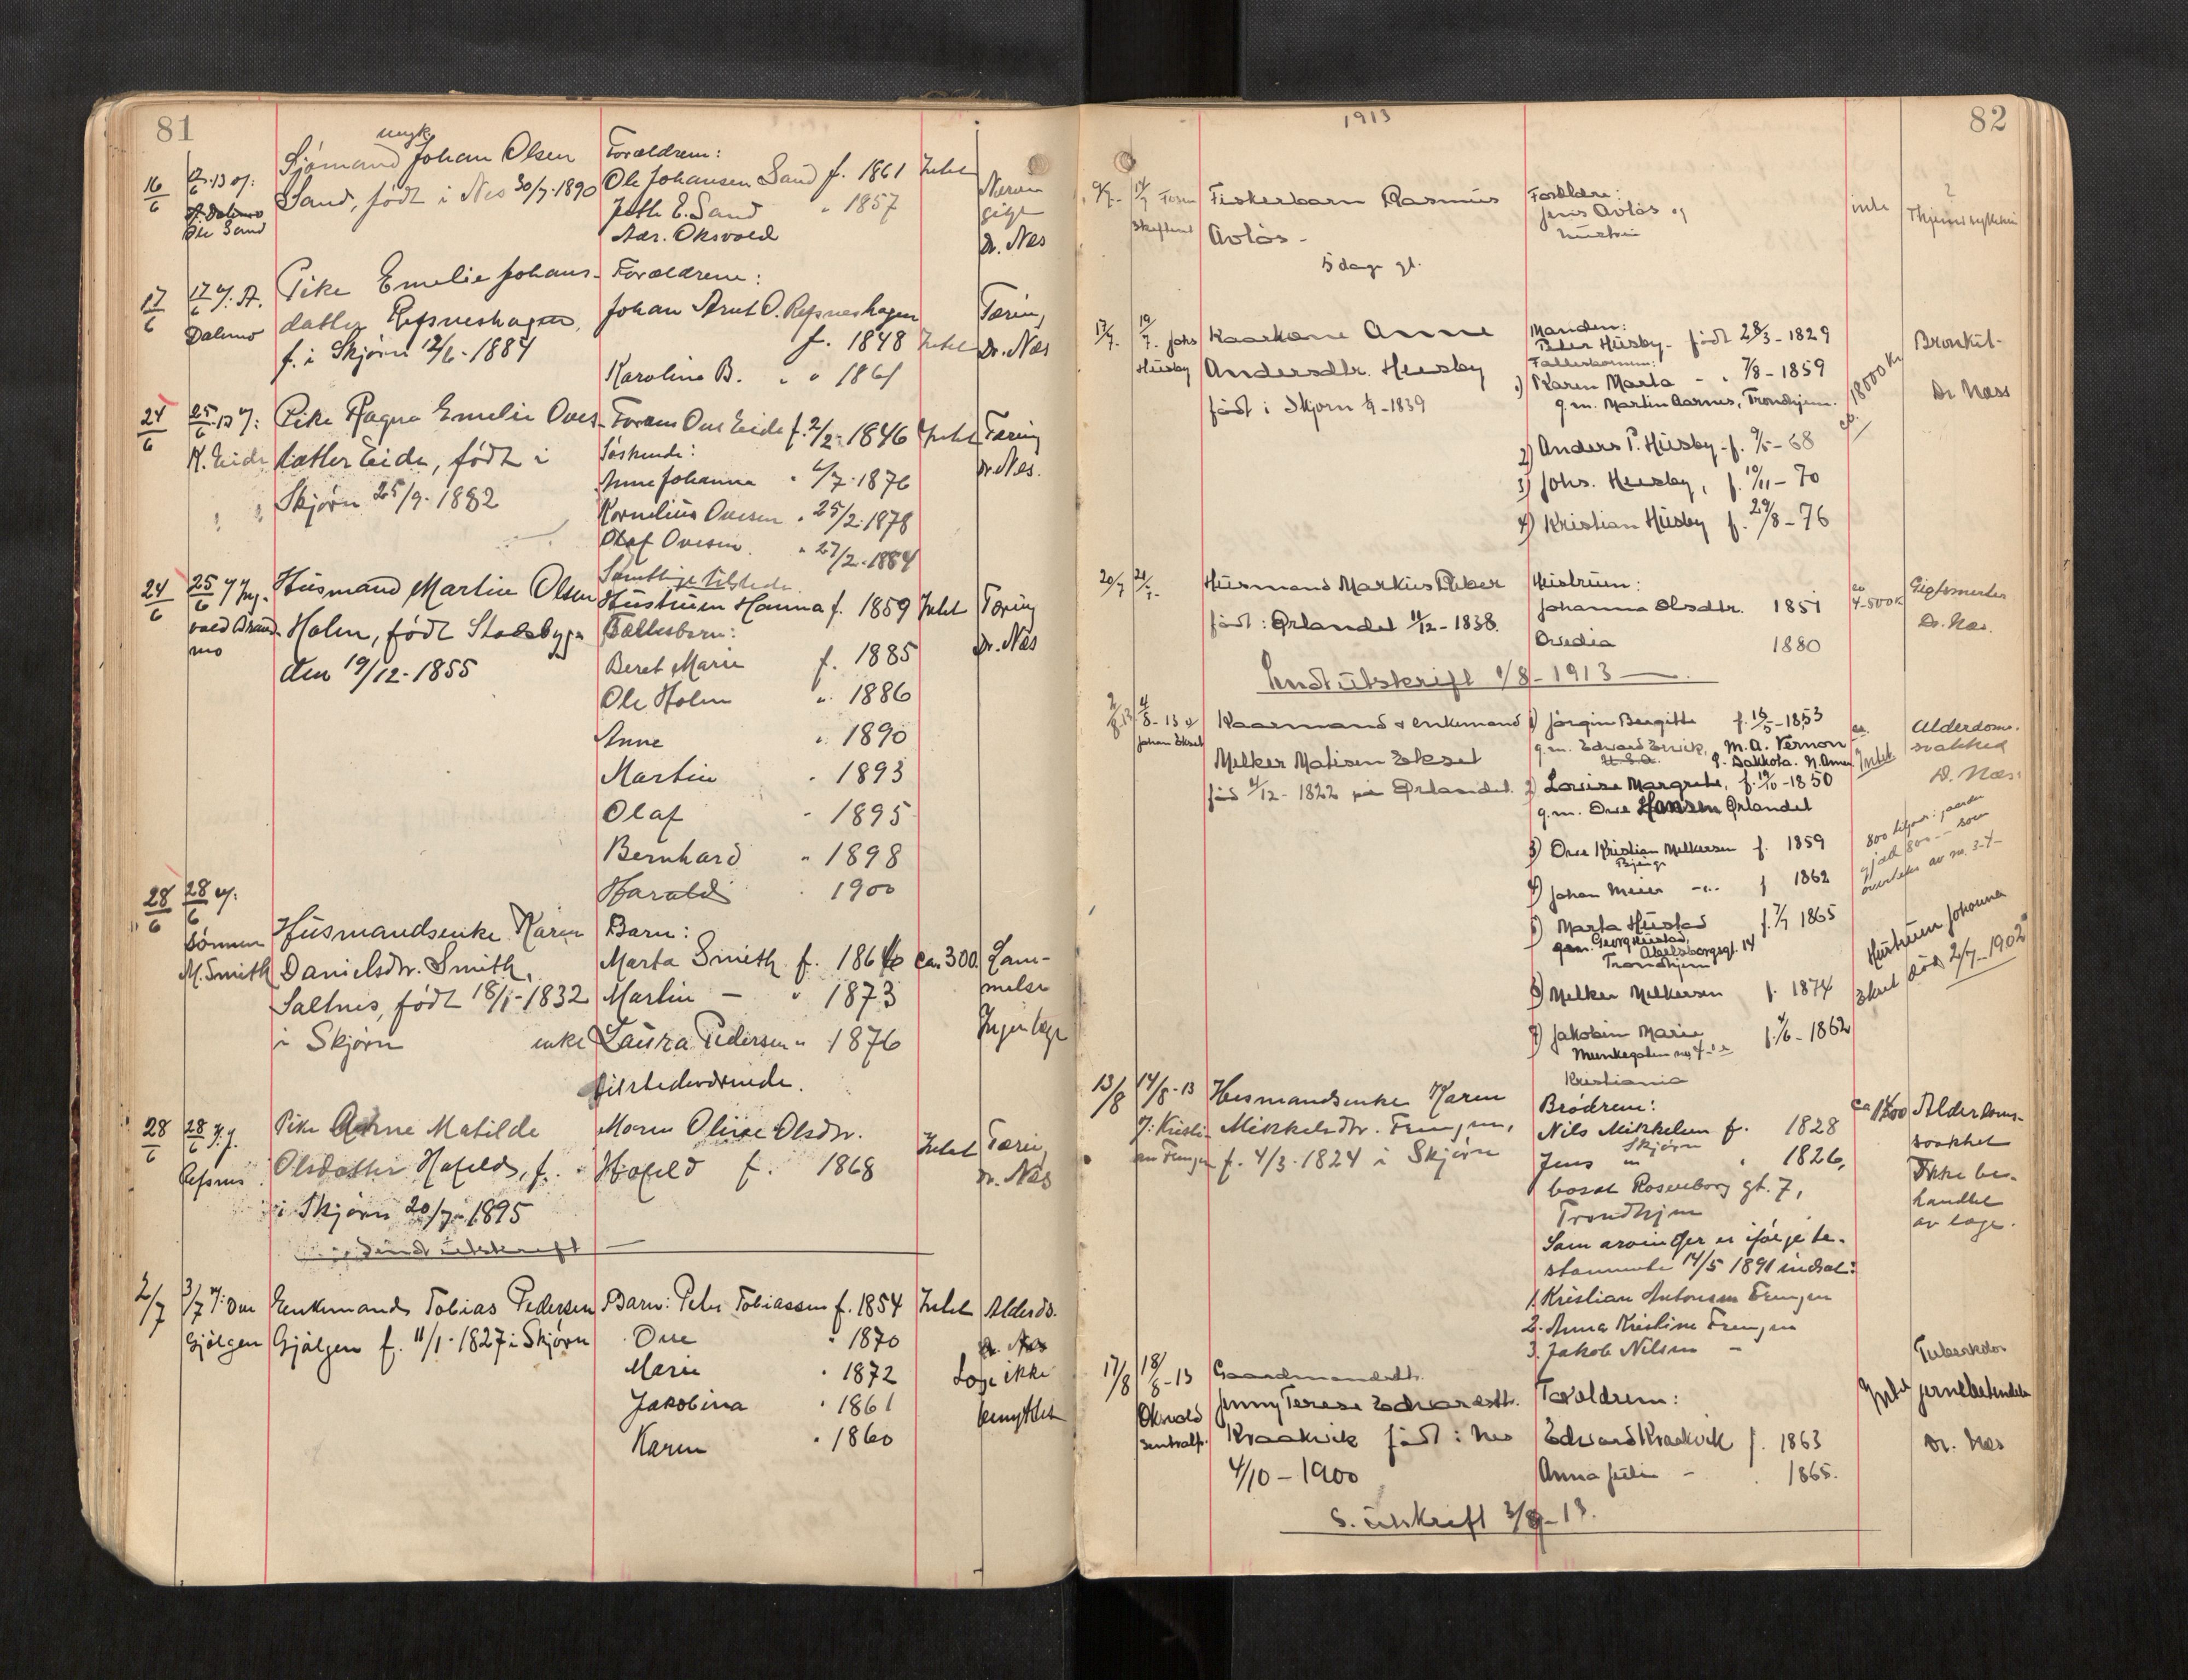 81
16/6
12/6 13 af:
A. Dalemo
Ole Sand
ungk.
Sjømand Johan Olsen
Sand, født i Nes 30/7-1890
Forældrene:
Ole Johansen Sand f. 1861
E. Sand " 1857
Adr. Oksvold
Intet
gigt
Dr. Næs
17/6
17/6 af. A.
Dalemo
Pike Emelie Johans-
datter Refsneshagen,
f. i Skjørn 12/6-1884
Forældrene:
Johan Arnt O. Refsneshagen
f. 1848
Karoline B. " " 1861
Intet
Tæring
Dr. Næs
24/6
25/6 13 af:
K. Eide
Pike Ragna Emelie Oves-
datter Eide, født i
Skjørn 25/9-1882
Faren Ove Eide f. 2/2-1846
Søskende:
Anne Johanna " 4/7-1876
Kornelius Ovesen " 25/2-1878
Olaf Ovesen " 27/2-1884
Samtlige tilstede
Intet
Tæring
Dr. Næs.
24/6
25/6 af Ing-
vald Strand-
mo
Husmand Martin Olsen
Holm, født Stadsbygn
den 19/12-1855
Hustruen Hanna f. 1859
Fællesbarn:
Beret Marie f. 1885
Ole Holm " 1886
Anne " 1890
Martin " 1893
Olaf " 1895
Bernhard " 1898
Harald " 1900
Intet
Tæring
Dr. Næs
28/6
28/6 af:
sønnen
M. Smith
Husmandsenke Karen
Danielsdtr. Smith,
Saltnes, født 18/1-1832
i Skjørn
Barn:
Marta Smith f. 1864
Martin — " 1873
enke Laura Pedersen " 1876
tilstedeværende.
ca. 300.
Lam-
melse
Ingen læge
28/6
28/6 af J.
Refsnes
Pike Anne Matilde
Olsdatter Hofeld, f.
i Skjørn 20/7-1895
Moren Oline Olsdtr.
Hofeld f. 1868
Intet
Tæring
Dr. Næs
Sendt utskrift
2/7
3/7 af: Ove
Gjølgen
Enkemand Tobias Pedersen
Gjølgen f. 11/1-1827 i Skjørn
Barn: Peter Tobiassen f. 1854
Ove " 1870
Marie " 1872
Jakobina " 1861
Karen " 1860
Intet
Alderds.
Dr. Næs
Læge ikke
benyttet
1913
82
9/7-
Fosen
Fiskerbarn Rasmus
Avløs -
5 dage gl.
Forældre:
Jens Avløs og
hustru
17/7.
19/7. Johs
Husby
Kaarkone Anne
Andersdtr. Husby
født i Skjørn 4/9-1839
Manden:
Peter Husby - født 28/3-1829
Fællesbarnene:
1) Karen Marta - " 7/8-1859
g.m. Martin Aarnes, Trondhjem.
2) Anders P. Husby - f. 9/5-68
3) Johs. Husby, f. 19/11-70
4) Kristian Husby f. 29/8-76
18000 Kr
Bronkit-
Dr. Næss
20/7
21/7-
Husmand Markus Eber
født: Ørlandet 11/12-1838.
Hustruen:
Johanna Olsdtr. 1851
Ovedia 1880
ca
4-500 K
Gigtsmerter
Dr. Næs.
Sendt utskrift 1/8-1913
2/8 13
4/8-13 v
Johan Ekset
Kaarmand & enkemand
Melker Matisen Ekset
fød 4/12-1822 på Ørlandet.
1) Jørgine Bergitte f. 15/5-1853
g.m. Edward Erick, M. A. Vernon
U.S.A. S. Dakkota. N. Amer.
2) Lovise Margrete, f. 19/10-1850
g.m. Ove Hansen Ørlandet
3) Ove Kristian Melkersen f. 1859
4) Johan Meier -"- f 1862
5) Marta Hustad f. 7/7 1865
g.m. Georg Hustad,
Abelsborgsgt. 14
Trondhjem
6) Melker Melkersen f. 1874
7) Jakobine Marie f. 4/6-1862
Munkegaten
Kristiania
Intet
Alderdoms-
svakhed
Dr. Næs.
Hustruen Johanna
Ekset død 2/7-1902
13/8
14/8-13
J. Kristi-
an Frengen
Husmandsenke Karen
Mikkelsdtr. Frengen,
f. 4/3-1824 i Skjørn
Brødrene:
Nils Mikkelsen f. 1828
Skjørn
Jens " " 1826,
bosat Rosenborg gt. 7,
Trondhjem
Som arvinger er ifølge te-
stamente 14/5 1891 indsat:
1. Kristian Antonsen Frengen
2. Anna Kristine Frengen
3. Jakob Nilsen -
Alderdoms-
svakhet
Ikke be-
handlet
av læge.
17/8
18/8-13
Oksvold
sentralst.
Gaardmandsdt.
Jenny Terese Edvardsdt.
Kraakvik født: Nes
4/10-1900
Forældrene:
Edvard Kraakvik f. 1863
Anna Julie - " 1865.
Intet
Tuberkulos
Dr. Næs
S. utskrift 3/9-13.